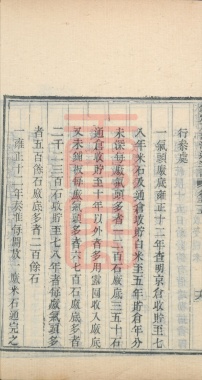 行参處
一氣頭廒底雍正十二年查明京倉收貯至七
八年米石及通倉收貯白米至五年貯倉年分
未深每廒氣頭多者一二百石廒底三五十石
通倉收貯至十年以外者多用露囤收入廒底
又未鋪板每廒氣頭多者六七百石廒底多者
二千二三百石收貯至七八年者每廒氣頭多
者五百餘石廒底多者二百餘石
一雍正十二年奏准每開放一廒米石通完之